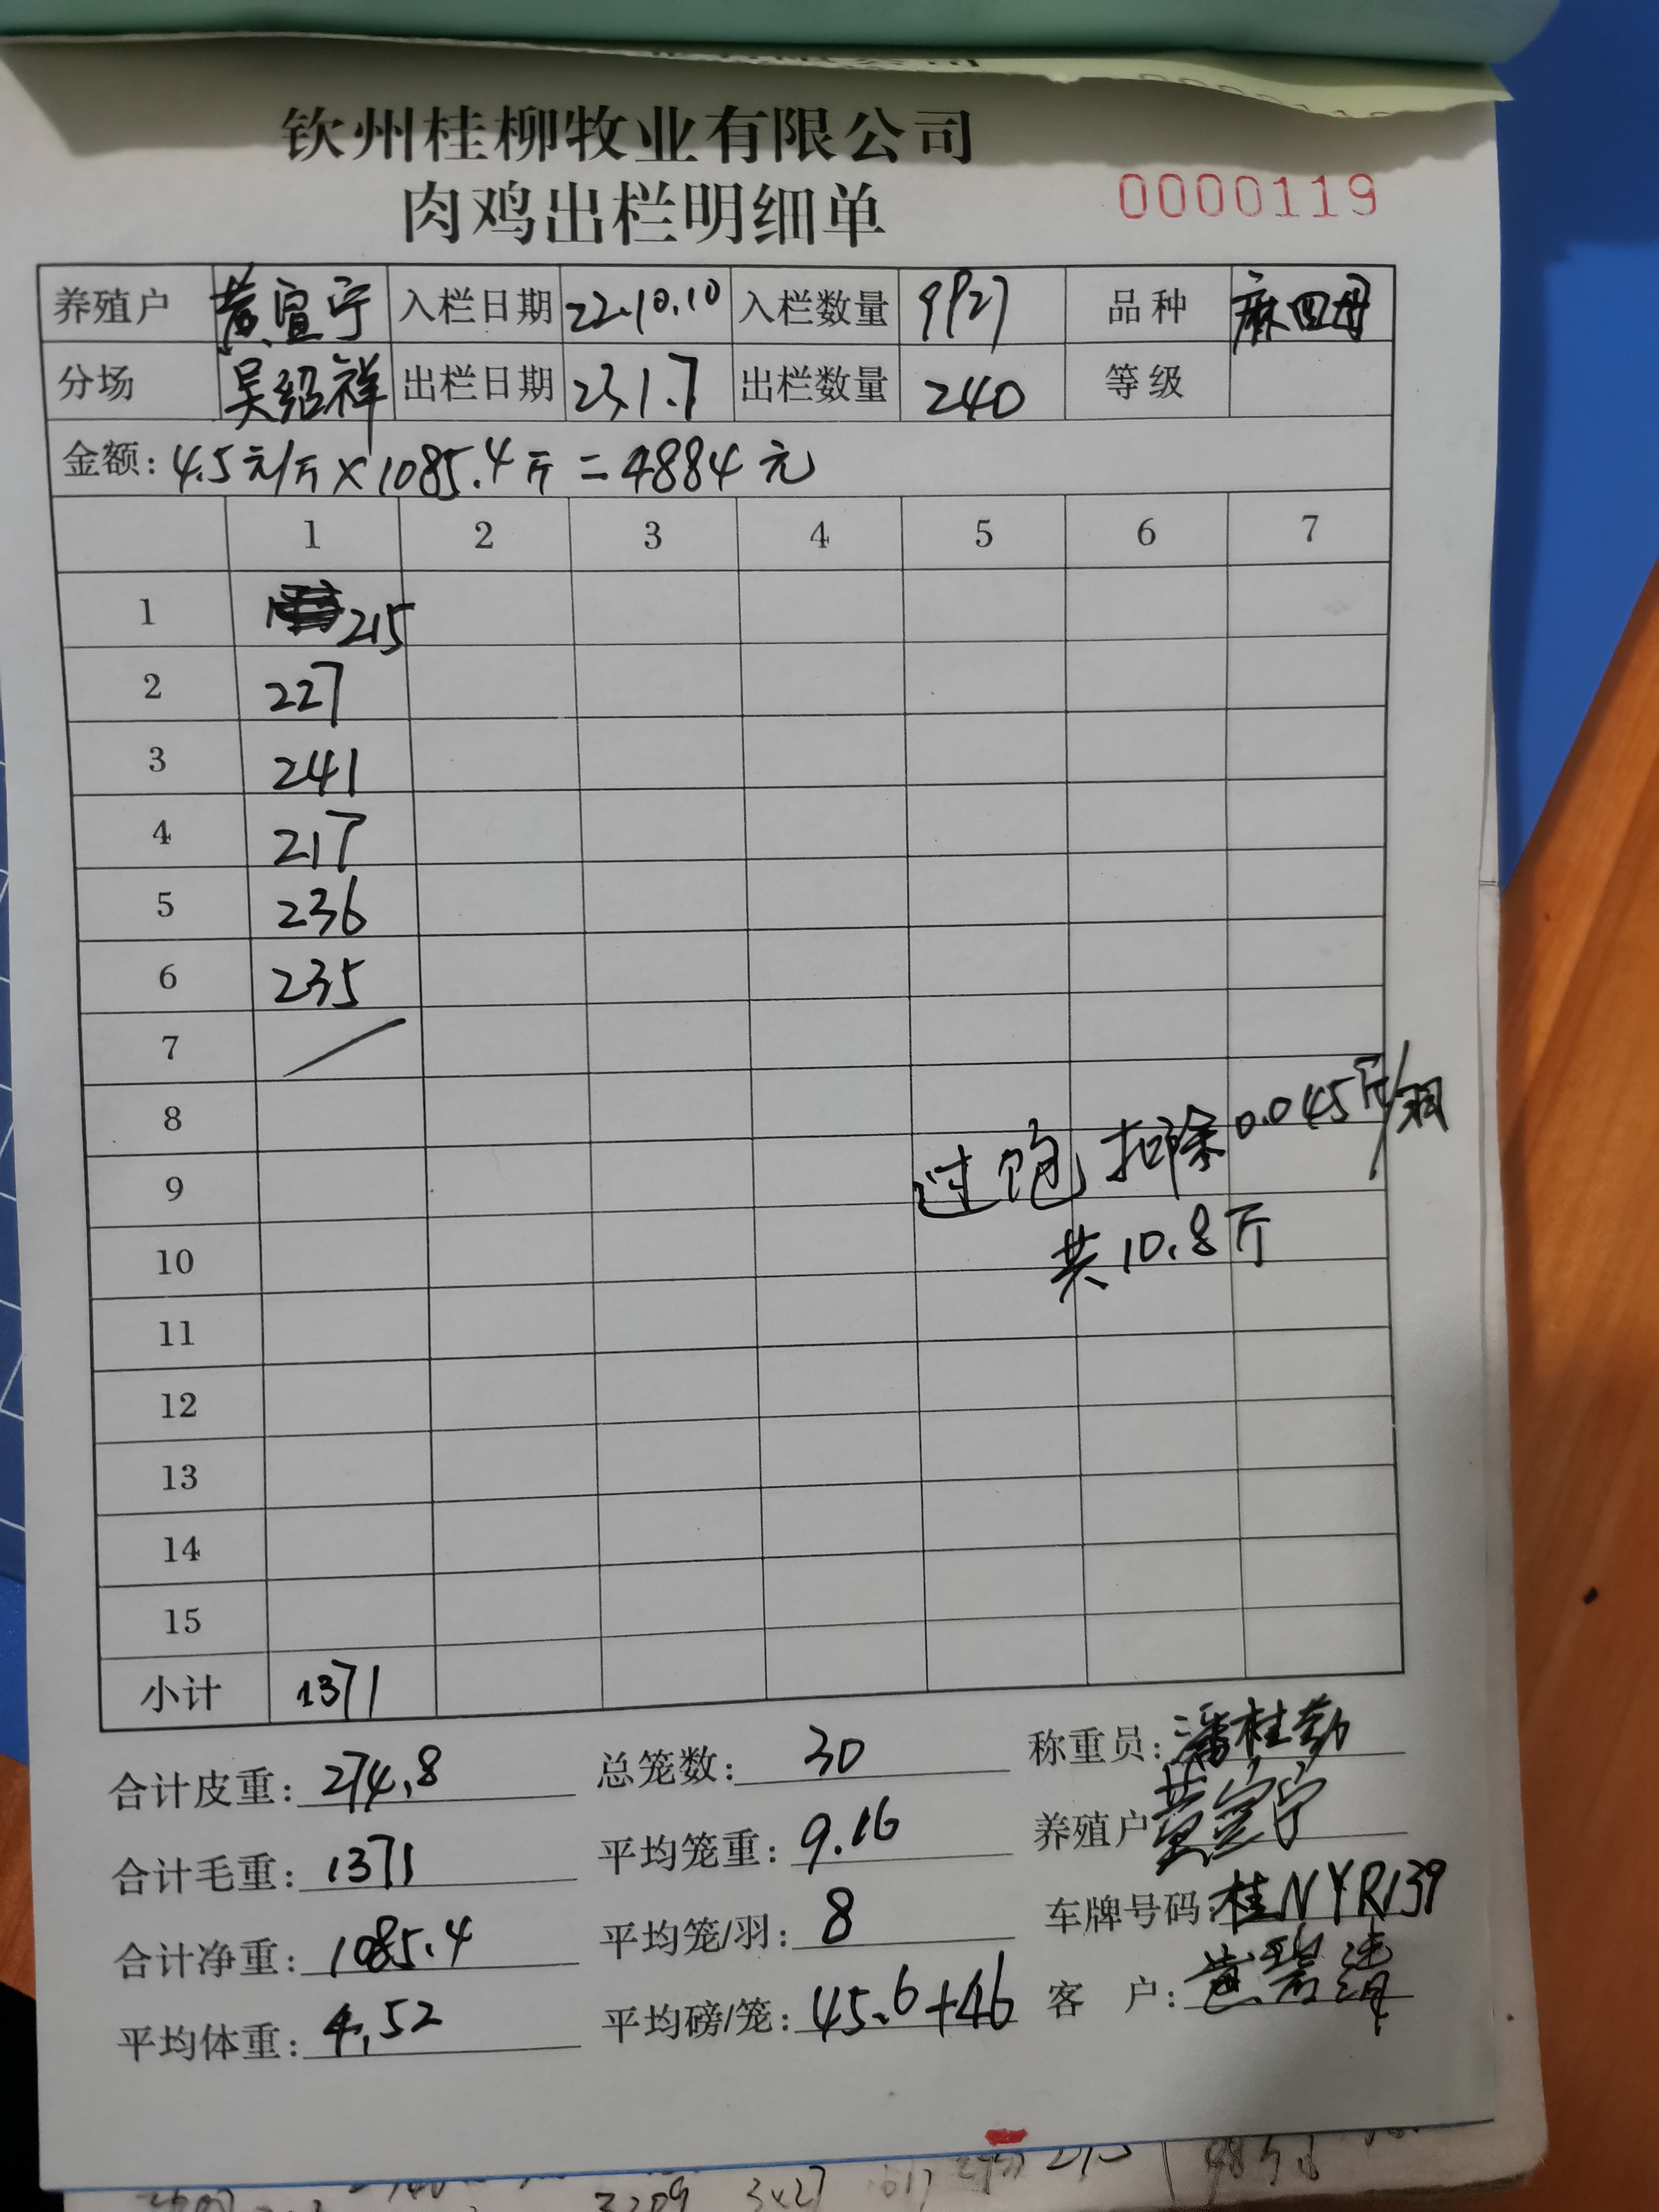 钦州桂柳牧业有限公司
肉鸡出栏明细单 0000119
养殖户 黄宣宁 入栏日期 22.10.10 入栏数量 9927 品种 麻四母
分场 吴绍祥 出栏日期 23.1.7 出栏数量 240 等级
金额: 4.5元/斤×1085.4斤=4884元
1 2 3 4 5 6 7
1 215
2 227
3 241
4 217
5 236
6 235
7 /
8
9 过饱 扣除0.045斤/羽
10 共10.8斤
11
12
13
14
15
小计 1371
合计皮重: 274.8 总笼数: 30 称重员: 潘桂勤
合计毛重: 1371 平均笼重: 9.16 养殖户 黄宣宁
合计净重: 1085.4 平均笼/羽: 8 车牌号码: 桂NYR139
平均体重: 4.52 平均磅/笼: 45.6+46 客户: